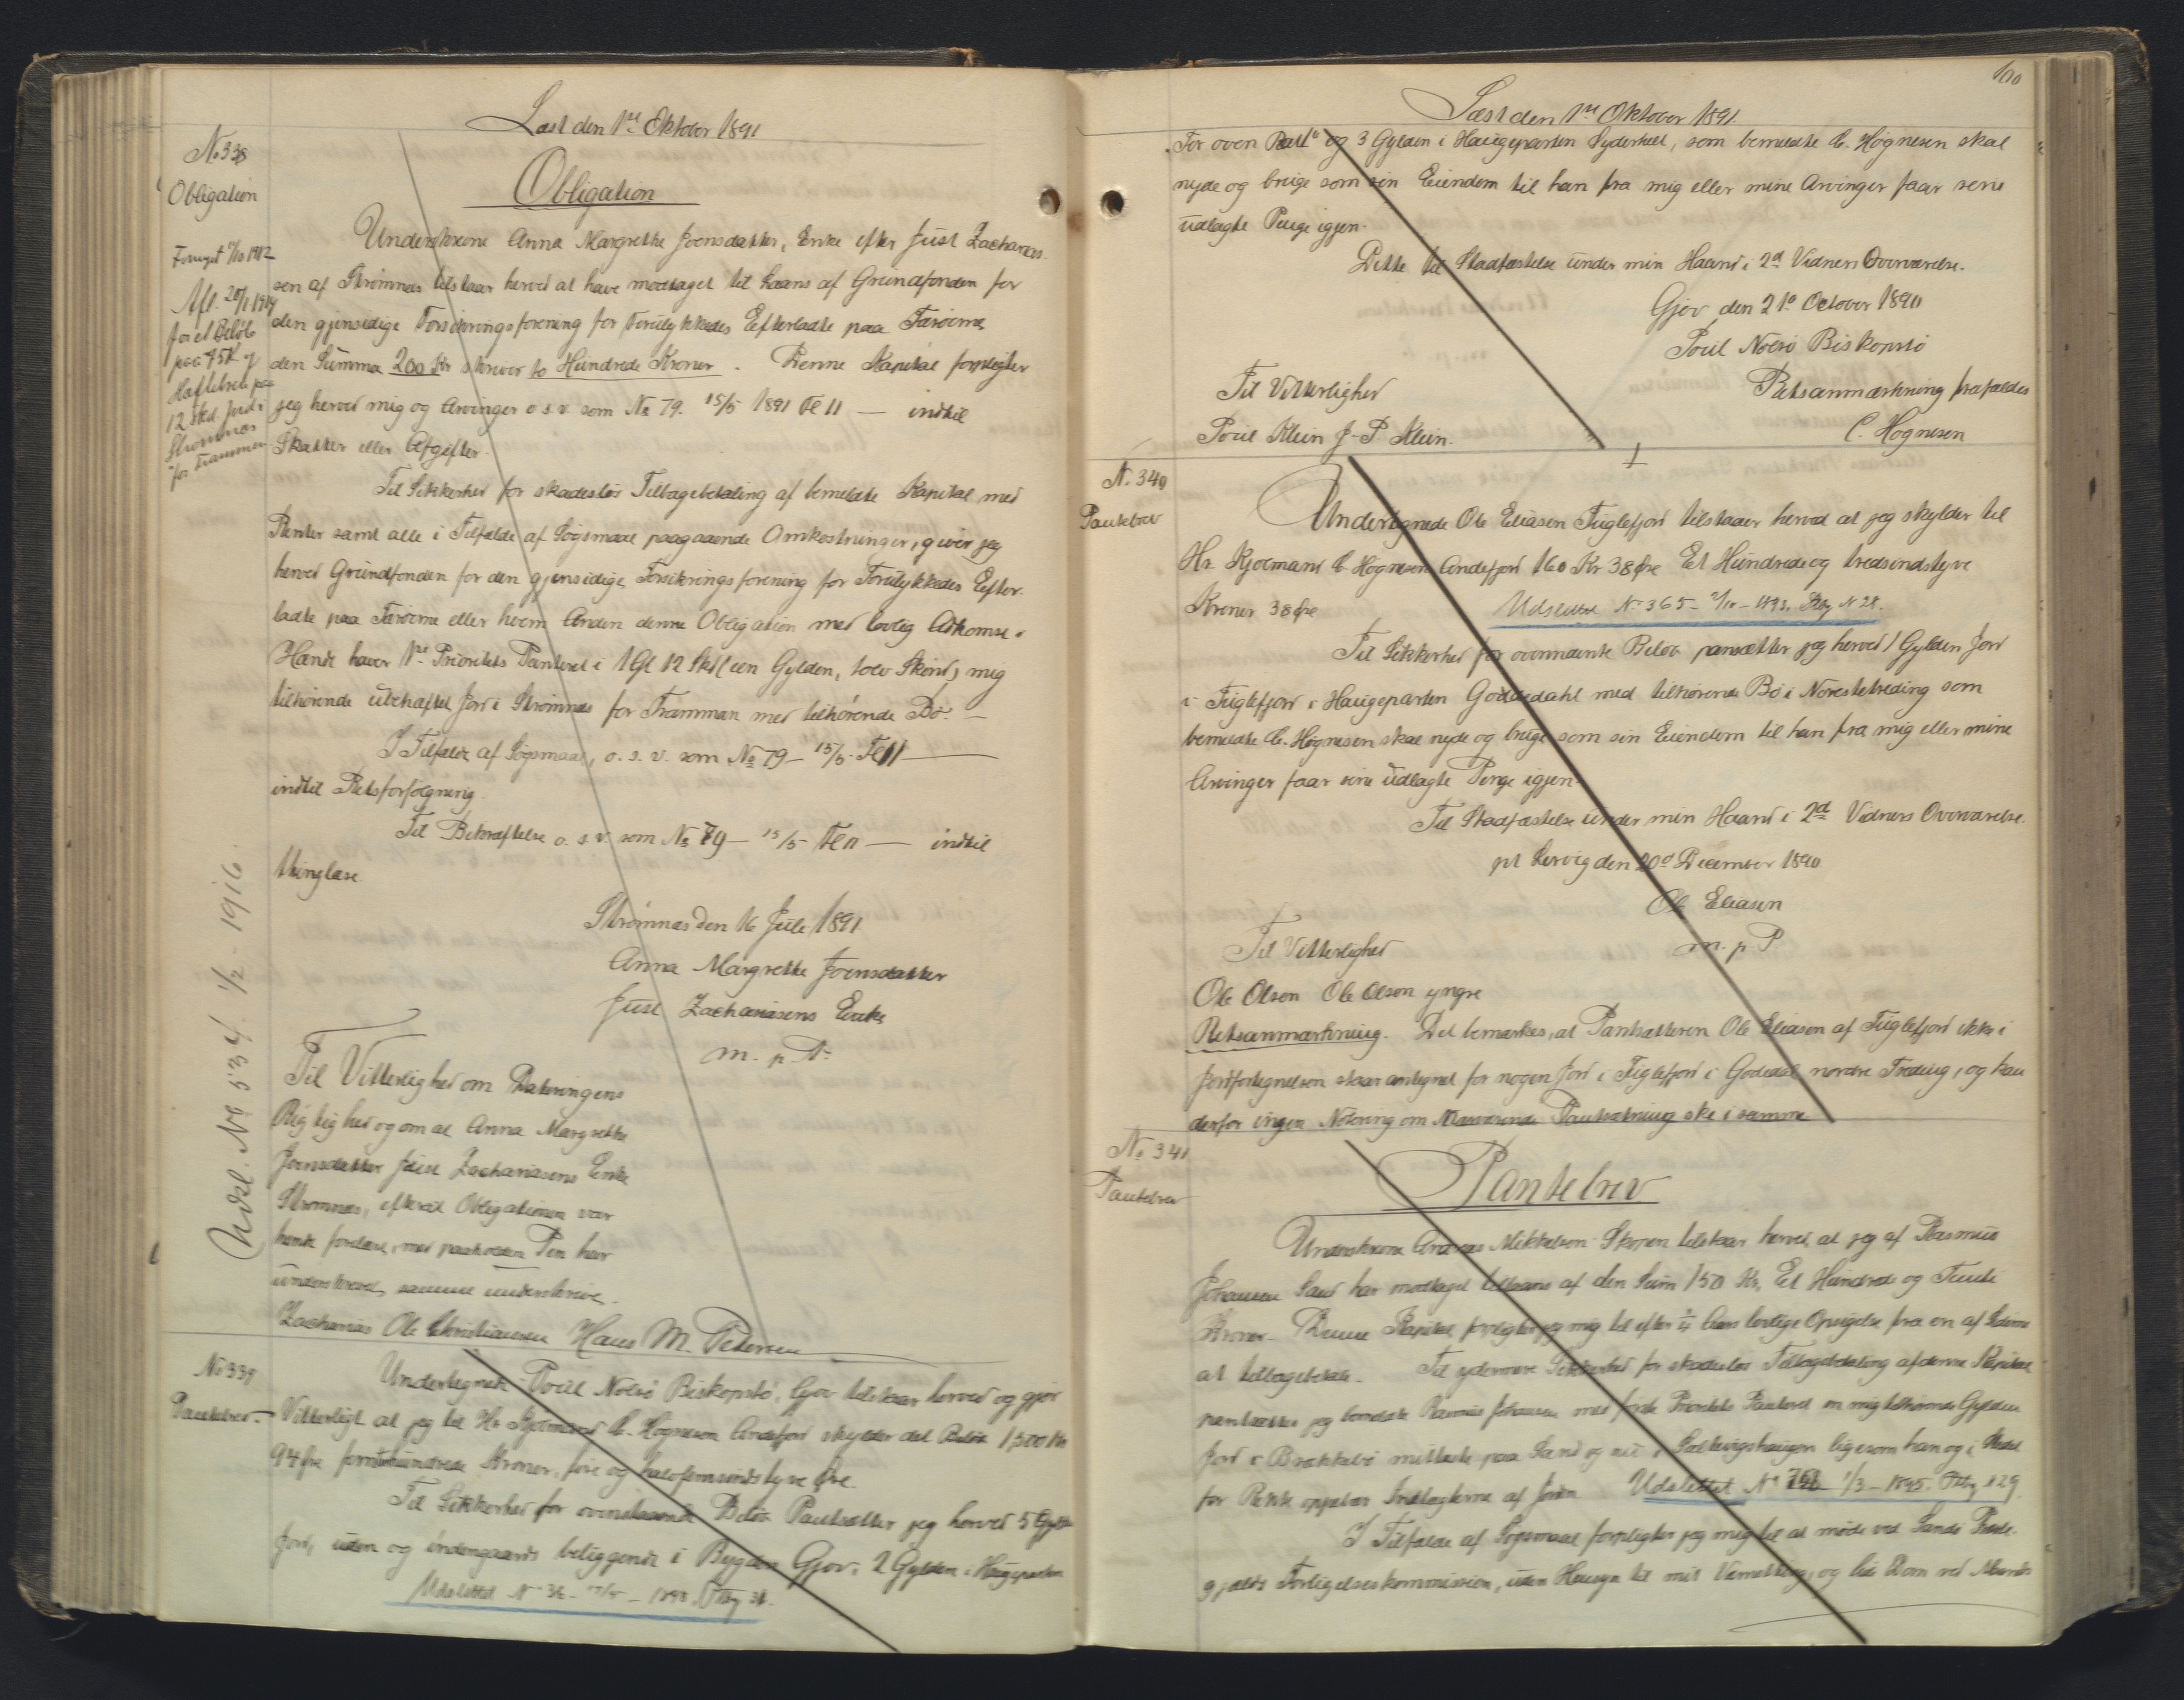 Læst den 1ste Oktober 1891
No 338
Obligation
Obligation
Underskrevne Anna Margrethe Joensdatter, Enke efter Just Zacharias-
Fornyet 1912
sen af Strømnæs tilstaar herved at have modtaget til Laans af Grundfonden for
Afl. 28/1 1914
den gjensidige Forsikringsforening for Forulykkedes Efterladte paa Færøerne
for et Beløb
den Summa 200 Kr skriver to Hundrede Kroner. Denne Kapital forpligter
paa 75 K og
Hæftelsen paa
jeg herved mig og Arvinger o.s.v. som No 79. 15/5 1891 Fl 11 — indtil
12 Skd. Jord i
Strømnæs
Skatter eller Afgifter.
"for Frammen
Til Sikkerhed for skadesløs Tilbagebetaling af bemeldte Kapital med
Renter samt alle i Tilfælde af Søgsmaal paagaaende Omkostninger, giver jeg
herved Grundfonden for den gjensidige Forsikringsforening for Forulykkedes Efter-
ladte paa Færøerne eller hvem Anden denne Obligation med lovlig Adkomst i
Hænde haver 1ste Prioritets Panteret i 1 Gl 12 Sk (een Gylden, tolv Skind) mig
tilhørende ubehæftet Jord i Strømnæs for Framman med tilhørende Bø. —
I Tilfælde af Søgsmaal, o. s. v. som No 79 - 15/5 - Fl 11 —
indtil Retsforfølgning.
Til Bekræftelse o. s. v. som No 79 — 15/5 - Fl 11 — indtil
thinglæse
Strømnæs den 16 Juli 1891
Anna Margrethe Joensdatter
Just Zachariasens Enke
m. p. P.
Til Vitterlighed om Dateringens
Rigtighed og om at Anna Margrethe
Joensdatter Just Zachariasens Enke
Strømnæs, efterat Obligationen var
hende forelæst, med paaholden Pen har
underskrevet samme underskrive.
Zacharias Ole Christiansen Hans M. Petersen
Udsl. No 534. 1/2 - 1916.
No 339
Pantebrev.
Undertegnede Poul Nolsø Biskopstø, Gjov tilstaar herved og gjør
Vitterligt at jeg til Hr. Kjøbmand C. Høgnesen Andefjord skylder det Beløb 1500 Kr
94 Øre femtenhundrede Kroner, fire og halvfemsindstyve Øre.
Til Sikkerhed for ovenstaaende Beløb Pantsætter jeg herved 5 Gylden
Jord, uden og indengaards beliggende i Bygden Gjov. 2 Gylden i Haugeparten
Udslettet No
100
Læst den 1ste Oktober 1891
"For oven Rætt" og 3 Gylden i Haugeparten Syderhelt, som bemeldte C. Høgnesen skal
nyde og bruge som sin Eiendom til han fra mig eller mine Arvinger faar sine
udlagte Penge igjen.
Dette til Stadfæstelse under min Haand i 2de Vidners Overværelse.
Gjov, den 21de October 1890
Poul Nolsø Biskopstø
Til Vitterlighed
Retsanmærkning frafaldes
Poul Klein J-P. Klein.
C. Høgnesen
N. 340
Pantebrev
Undertegnede Ole Eliasen Fuglefjord tilstaaer herved at jeg skylder til
Hr. Kjøbmand C. Høgnesen Andefjord 160 Kr 38 Øre Et Hundrede og tredsindstyve
Kroner 38 Øre
Udslettet No 365 - 1893. N 28.
Til Sikkerhed for ovennævnte Beløb pansætter jeg herved 1 Gylden Jord
i Fuglefjord i Haugeparten Goddedahl med tilhørende Bø i Norestetreding som
bemeldte C. Høgnesen skal nyde og bruge som sin Eiendom til han fra mig eller mine
Arvinger faar sine udlagte Penge igjen.
Til Stadfæstelse under min Haand i 2de Vidners Overværelse.
pt Lervig den 20de December 1890
Ole Eliasen
m. p. P
Til Vitterlighed
Ole Olsen Ole Olsen yngre
Retsanmærkning. Det bemærkes, at Pantsætteren Ole Eliasen af Fuglefjord ikke i
Jordfortegnelsen staar antegnet for nogen Jord i Fuglefjord i Godedal nordre Treding, og kan
derfor ingen Notering om nærværende Pantsætning ske i samme
No 341
Pantebrev
Pantebrev
Underskrevne Andreas Mikkelsen Skopen tilstaar herved, at jeg af Rasmus
Johansen Sand har modtaget tillaans af den Sum 150 Kr, Et Hundrede og Femti
Kroner. Denne Kapital forpligter jeg mig til efter 1/4 Aars lovlige Opsigelse fra en af Siderne
at tilbagebetale. Til ydermere Sikkerhed for skadesløs Tilbagebetaling af denne Kapital
pantsætter jeg bemeldte Rasmus Johansen med første Prioritets Panteret en mig tilhørende Gylden
Jord i Brækkebø paa Sand og ligesom han og i Sted
for Rente oppebær Indtægterne af Jorden Udslettet No 1/3 - 1895. N 29
I Tilfælde af Søgsmaal forpligter jeg mig til at møde ved Sands Præste-
gjælds Forligelseskommission, uden Hensyn til mit Værnething, og lide Dom ved